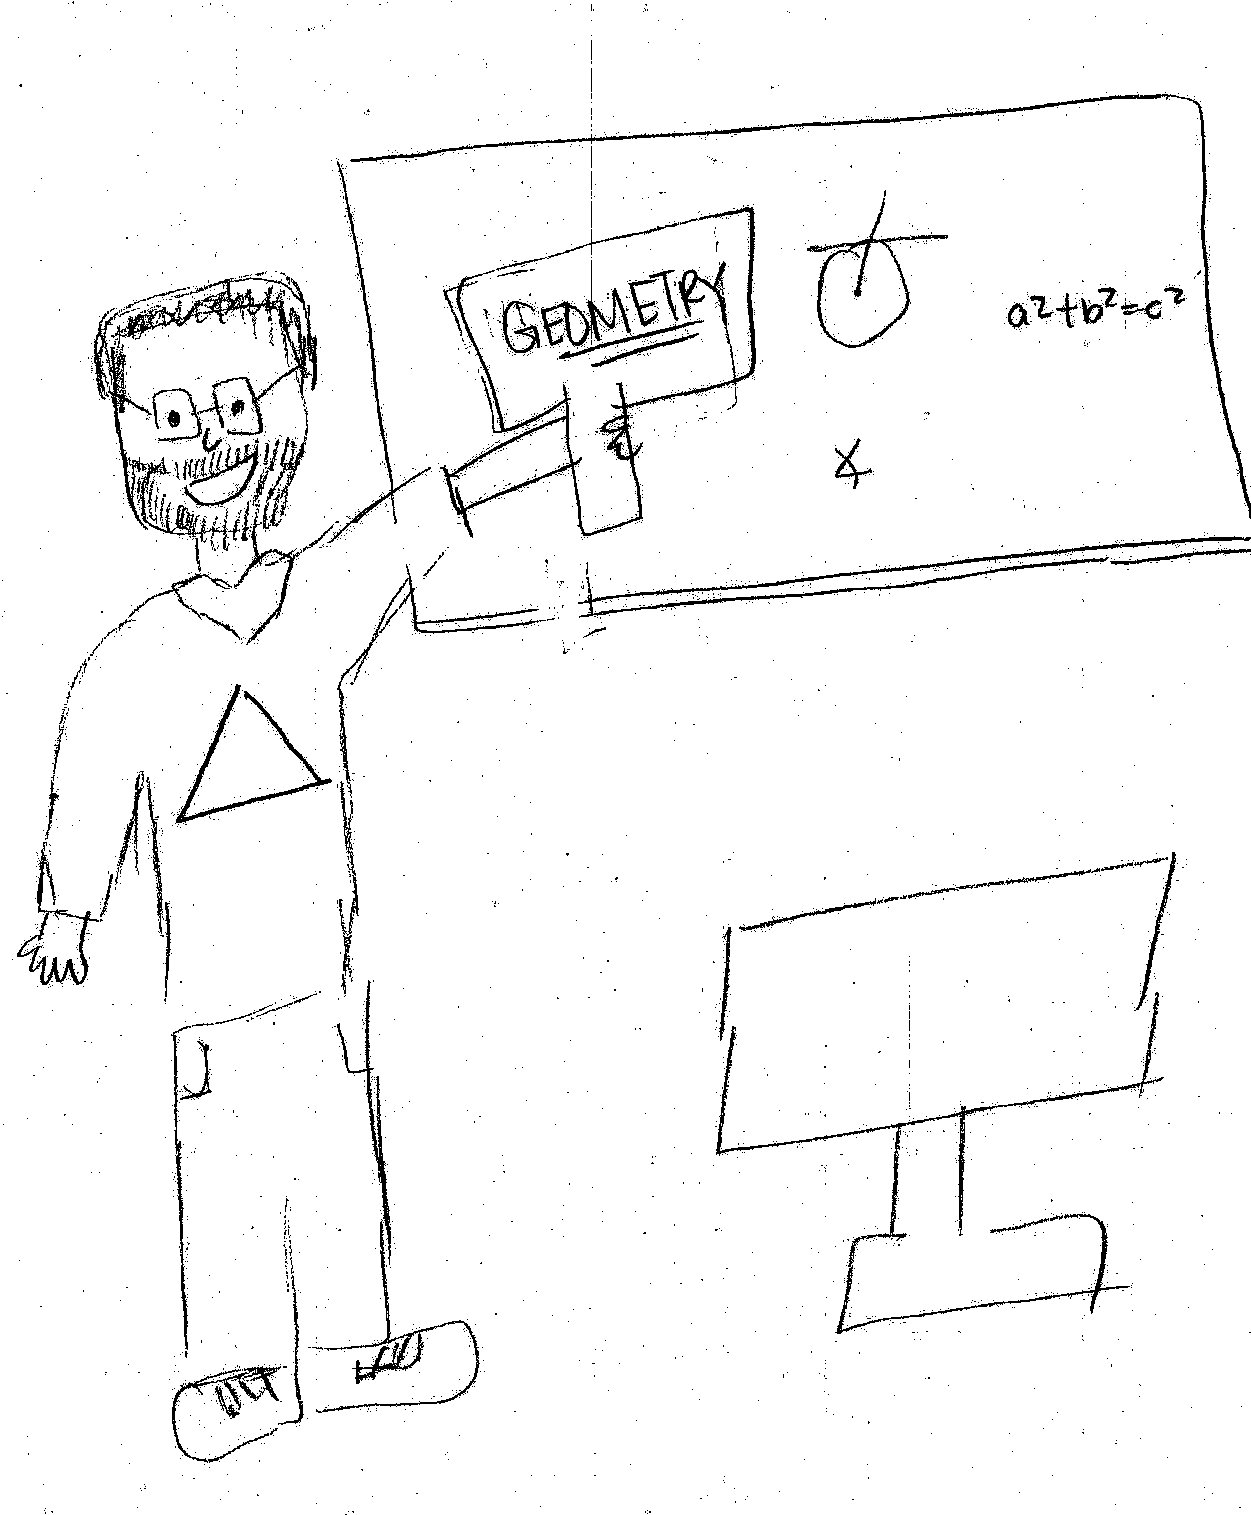 GEOMETRY
a²+b²=c²